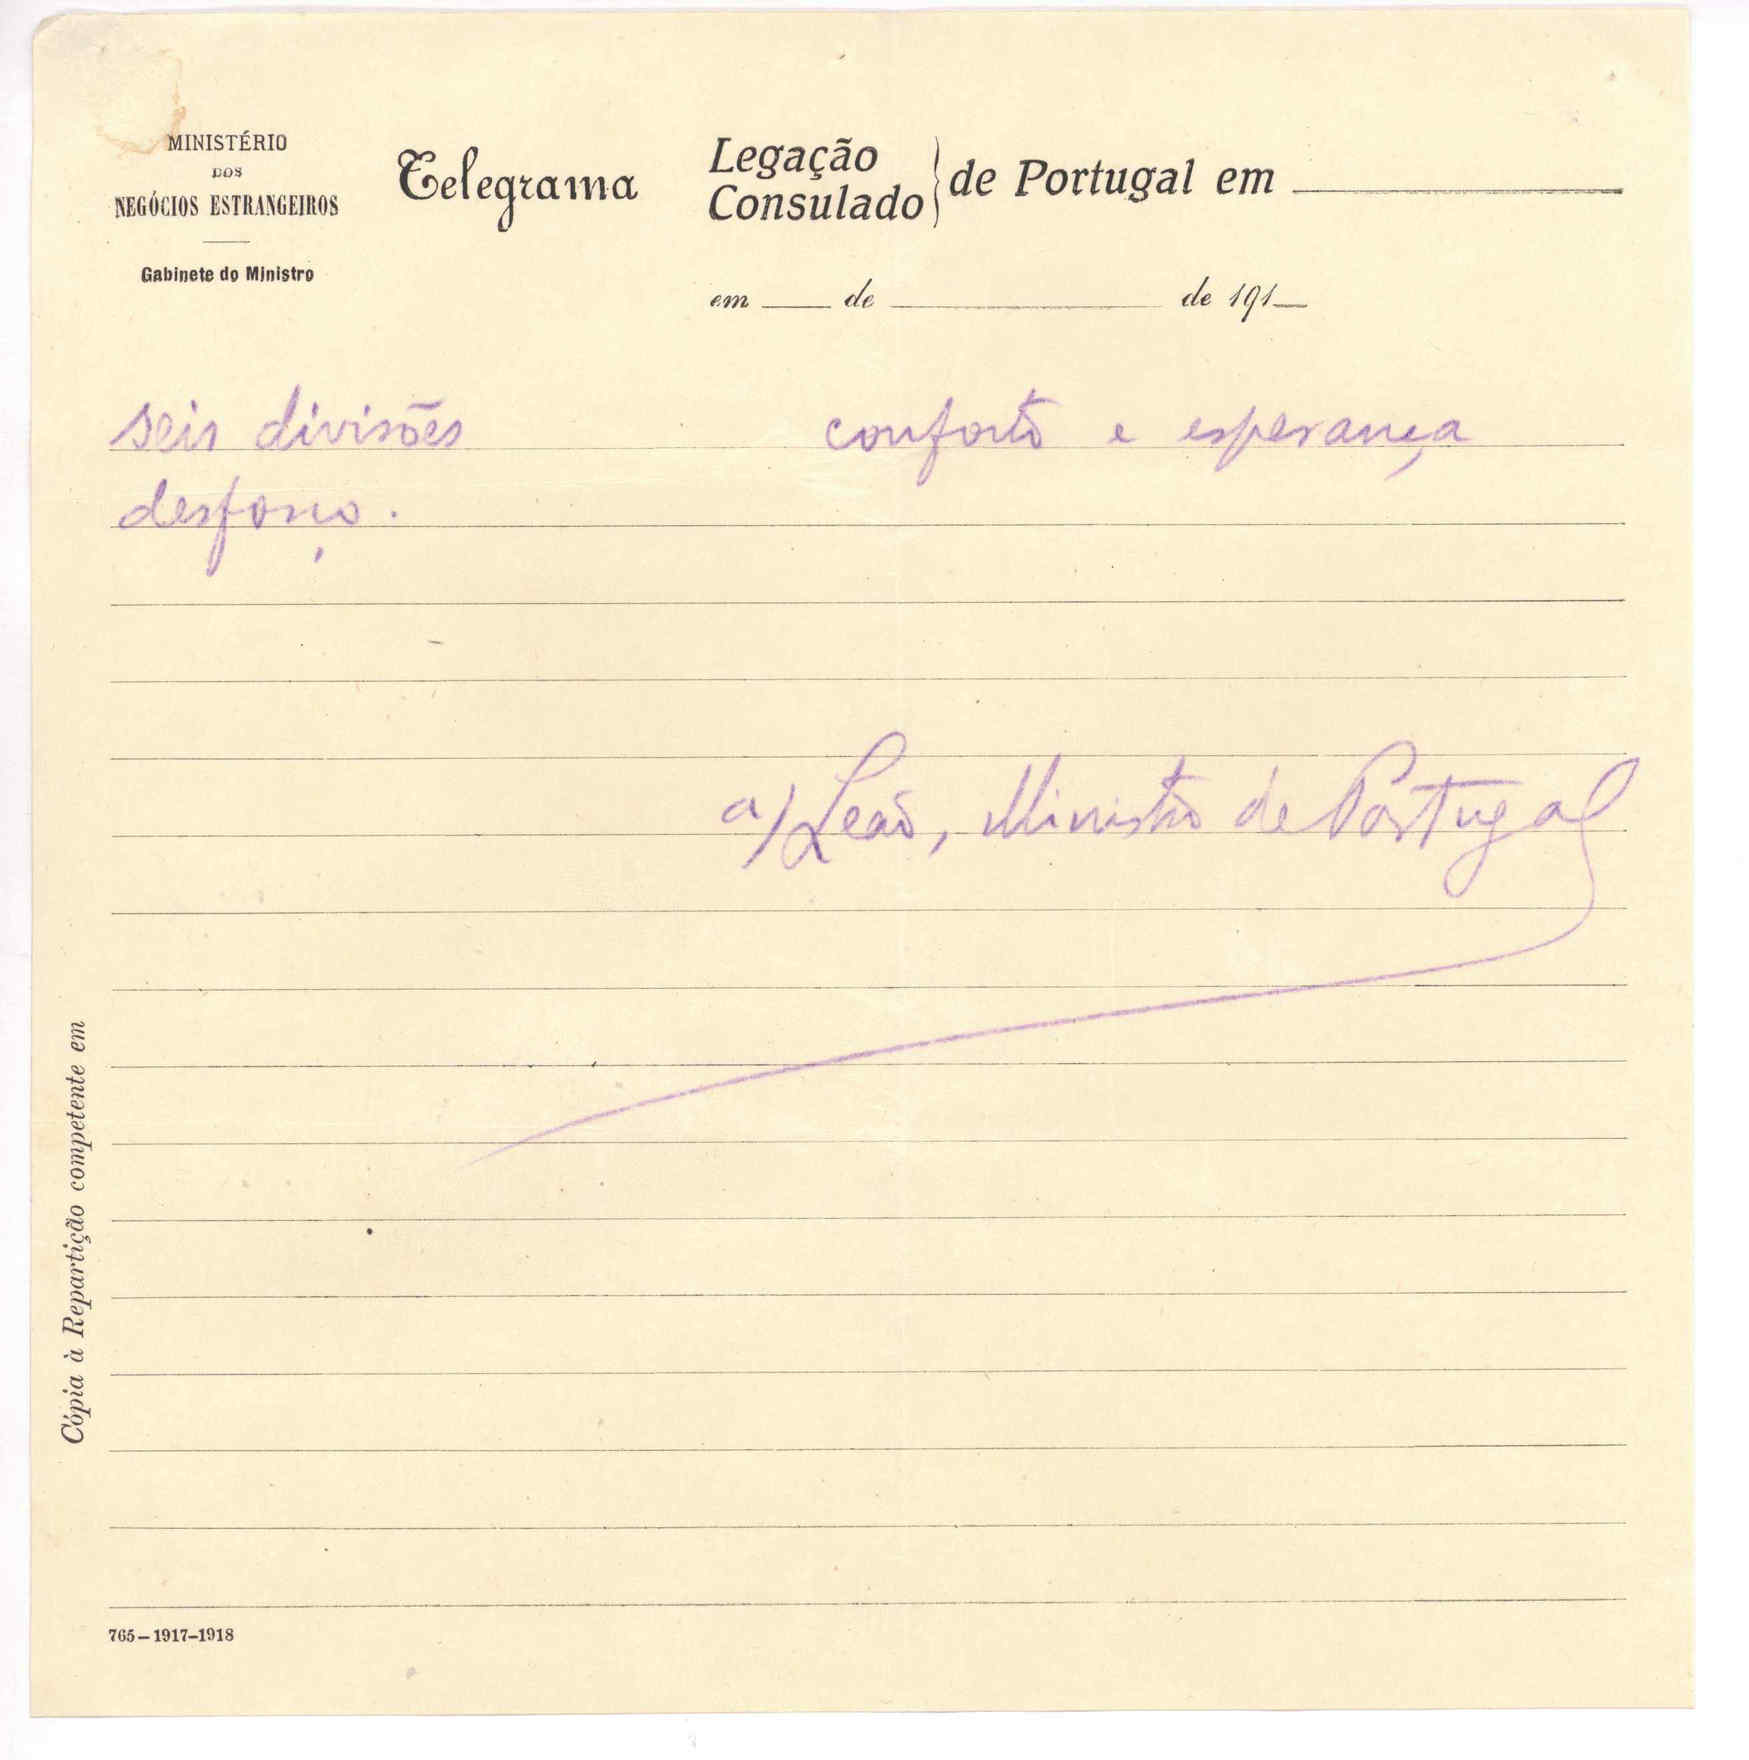 MINISTÉRIO
DOS
NEGÓCIOS ESTRANGEIROS
Gabinete do Ministro
Telegrama
Legação
Consulado
de Portugal em
em de de 191
seis divisões conforto e esperança
desforço.
a) Leão, Ministro de Portugal
Cópia à Repartição competente em
765–1917–1918